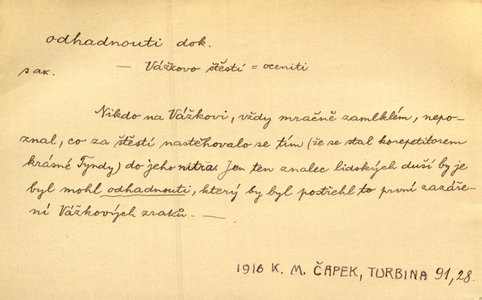 odhadnouti dok.
s ak.
— Vážkovo štěstí = oceniti
Nikdo na Vážkovi, vždy mračně zamlklém, nepo-
znal, co za štěstí nastěhovalo se tím (že se stal korepetitorem
krásné Tyndy) do jeho nitra. Jen ten znalec lidských duší by je
byl mohl odhadnouti, který by byl postřehl to první zazáře-
ní Vážkových zraků. —
1916 K. M. ČAPEK, TURBINA 91,28.